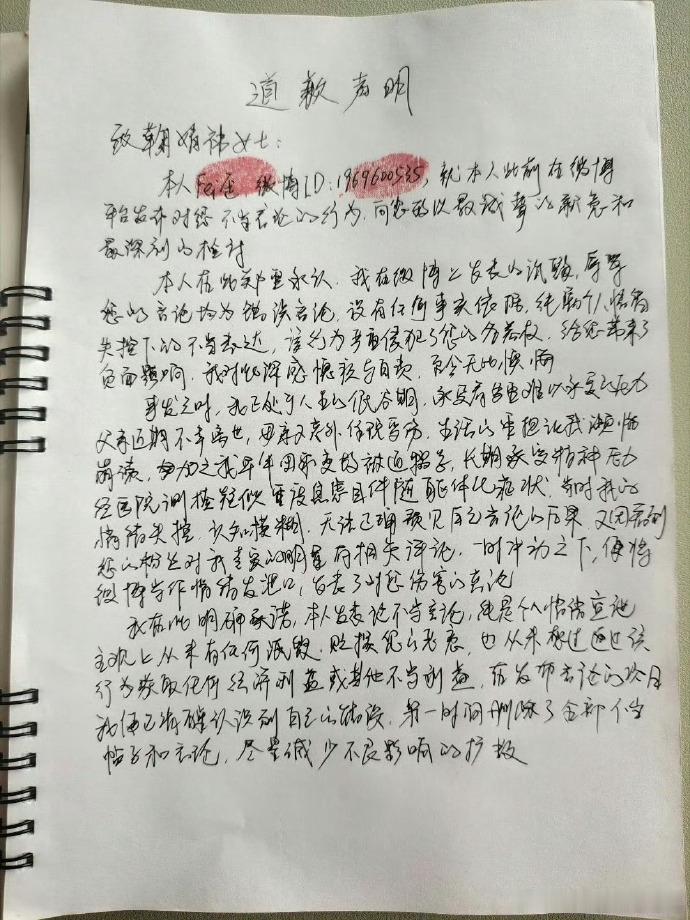 道歉声明
致鞠婧祎女士:
本人 微博ID:1969600535,就本人此前在微博
平台发布对您不当言论的行为,向您致以最诚挚的歉意和
最深刻的检讨
本人在此郑重承认,我在微博上发表的诋毁,辱骂
您的言论均为错误言论,没有任何事实依据,纯属个人情绪
失控下的不当表达,该行为严重侵犯了您的名誉权,给您带来了
负面影响,我对此深感愧疚与自责,
事发之时,我正处于人生的低谷期,承受着 难以承受的压力
父亲近期不幸离世,母亲又意外住院,生活的重担让我濒临
崩溃,加之我早年因 变故被迫 ,长期承受精神压力
经医院测检疑似重度 伴随躯体化症状,当时我的
情绪失控,认知模糊,无法正确预见自己言论的后果,又因看到
您的粉丝对我喜爱的明星的相关评论,一时冲动之下,便将
微博当作情绪发泄口,发表了对您伤害的言论
我在此明确承诺,本人发表的不当言论,纯是个人情绪宣泄
主观上从未有任何诋毁,贬损您的恶意,也从未想过通过该
行为获取任何经济利益或其他不当利益,在发布言论的次日
我便已清醒认识到自己的错误,第一时间删除了全部不当
帖子和言论,尽量减少不良影响的扩散